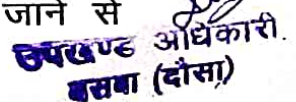 जाने से
उपखण्ड अधिकारी.
बसवा (दौसा)